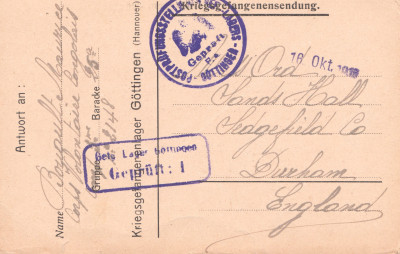 Kriegsgefangenensendung.
POSTPRÜFUNGSSTELLE
Geprüft
16 Okt. 1918
Ord
Sands Hall
Sedgefield Co
Durham
England
Antwort an:
Name
Corps Volontaire Congolais
Gruppe
Baracke 95
Kriegsgefangenenlager Göttingen (Hannover)
Gefg. Lager Göttingen
Geprüft: 1